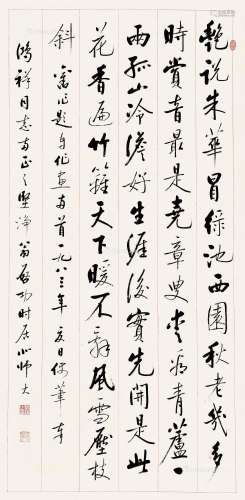 艷說朱華冒綠池西園秋老幾多
時賞音最是堯章叟青蘆一
兩孤山冷澹好生涯後實先開是此
花香遍竹籬天下暖不辭風雪壓枝
斜 舊作題自作畫兩首一九八三年夏日偶筆奉
鴻祥同志正之堅淨翁啟功時居北師大